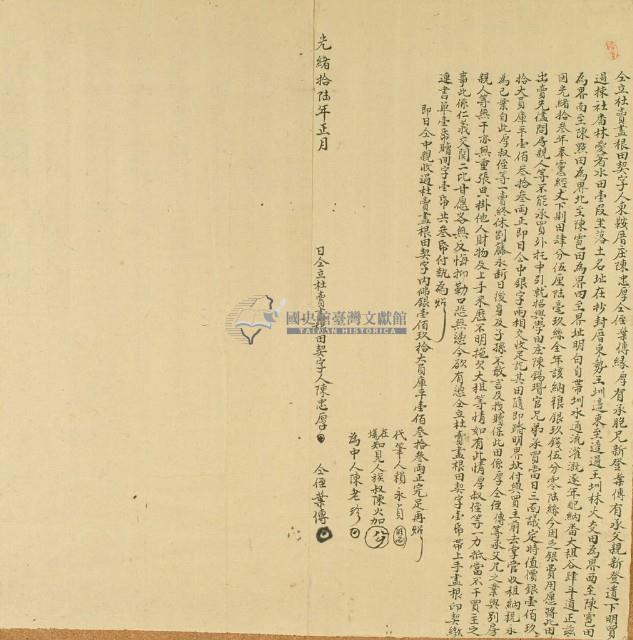 仝立杜賣盡根田契字人東鞍厝庄陳忠厚仝侄葉傳緣厚有承胞兄新登葉傳有承父親新登遺下明買
過揀社番林愛著水田壹段坐落土名址在抄封厝東勢王圳邊東至遺過王圳林火炎田為界西至陳霓田
為界南至陳點田為界北至陳霓田為界四至界址明白自帶圳水通流灌溉逐年配納番大租谷肆斗道正茲
因光緒拾叁年奉憲經丈下則田肆分伍厘陸毫玖絲全年該納粮銀玖錢伍分零陸絲今因乏銀費用愿將此田
出賣先儘問房親人等不能承買外托中引就招與學田庄陳錫瑨官兄弟承買當日三面議定時值價銀壹佰玖
拾大員庫平壹佰叁拾叁兩正即日仝中銀字兩相交收足訖其田隨即踏明界址付與買主前去掌管收租納稅永
為己業自此厚叔侄等一賣終休割藤永斷日後身及子孫不敢言及找贖保此田係厚仝侄傳等承父兄之業與別房
親人等無干亦無重張典掛他人財物及上手來歷不明拖欠大租等情如有此情厚叔侄等一力抵當不干買主之
事此係仁義交関二比甘愿各無反悔抑勒口恐無憑今欲有憑仝立杜賣盡根田契字壹帋帶上手盡根印契繳
連書单壹帋贌佃字壹帋共叁帋付執為炤
即日仝中親收過杜賣盡根田契字內佛銀壹佰玖拾大員庫平壹佰叁拾叁兩正完足再炤
代筆人賴永貞
在塲知見人族叔陳火加
為中人陳老珍
日仝立杜賣盡根田契字人陳忠厚
仝侄葉傳
光緒拾陸年正月
國史館臺灣文獻館
TAIWAN HISTORICA